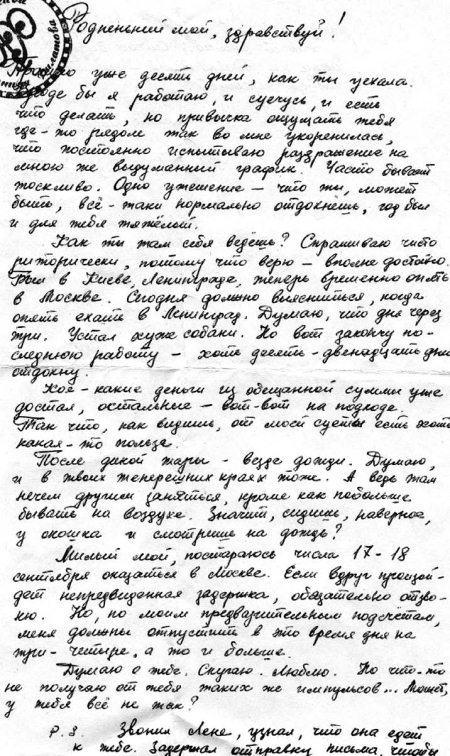 Родненький мой, здравствуй!
Прошло уже десять дней, как ты уехала.
Вроде бы я работаю, и суечусь, и есть
что делать, но привычка ощущать тебя
где-то рядом так во мне укоренилась,
что постоянно испытываю раздражение на
мною же выдуманный график. Часто бывает
тоскливо. Одно утешение – что ты, может
быть, всё-таки нормально отдохнёшь, год был
и для тебя тяжёлый.
Как ты там себя ведёшь? Спрашиваю чисто
риторически, потому что верю – вполне достойно.
Был в Киеве, Ленинграде, теперь временно опять
в Москве. Сегодня должно выясниться, когда
опять ехать в Ленинград. Думаю, что дня через
три. Устал хуже собаки. Но вот закончу по-
следнюю работу – хоть десять-двенадцать дней
отдохну.
Кое-какие деньги из обещанной суммы уже
достал, остальные – вот-вот на подходе.
Так что, как видишь, от моей суеты есть хоть
какая-то польза.
После дикой жары – везде дожди. Думаю,
и в твоих теперешних краях тоже. А ведь там
нечем другим заняться, кроме как побольше
бывать на воздухе. Значит, сидишь, наверное,
у окошка и смотришь на дождь?
Милый мой, постараюсь числа 17-18
сентября оказаться в Москве. Если вдруг произой-
дет непредвиденная задержка, обязательно отзво-
ню. Но, по моим предварительным подсчётам,
меня должны отпустить в это время дня на
три-четыре, а то и больше.
Думаю о тебе. Скучаю. Люблю. Но что-то
не получаю от тебя таких же импульсов... Может,
у тебя всё не так?
P.S. Звонил Лене, узнал, что она едет
к тебе. Задержал отправку письма, чтобы